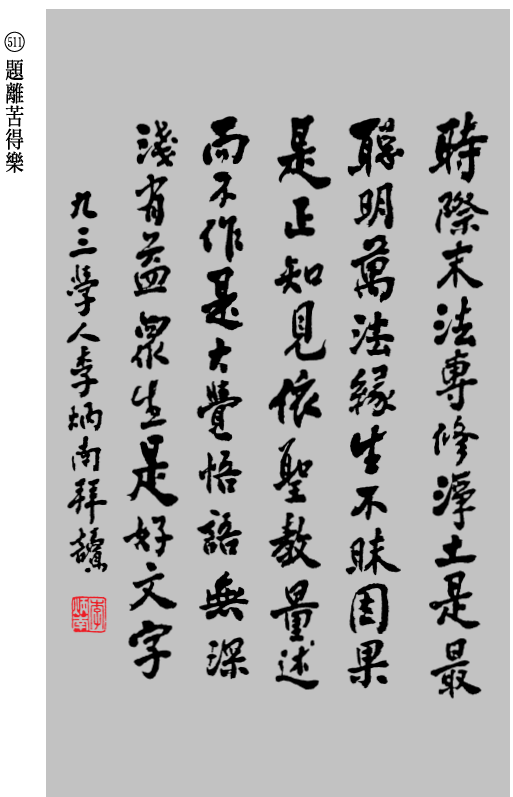 511 題離苦得樂
時際末法專修淨土是最
聰明萬法緣生不昧因果
是正知見依聖教量述
而不作是大覺悟語無深
淺有益眾生是好文字
九三學人李炳南拜讀
李炳南